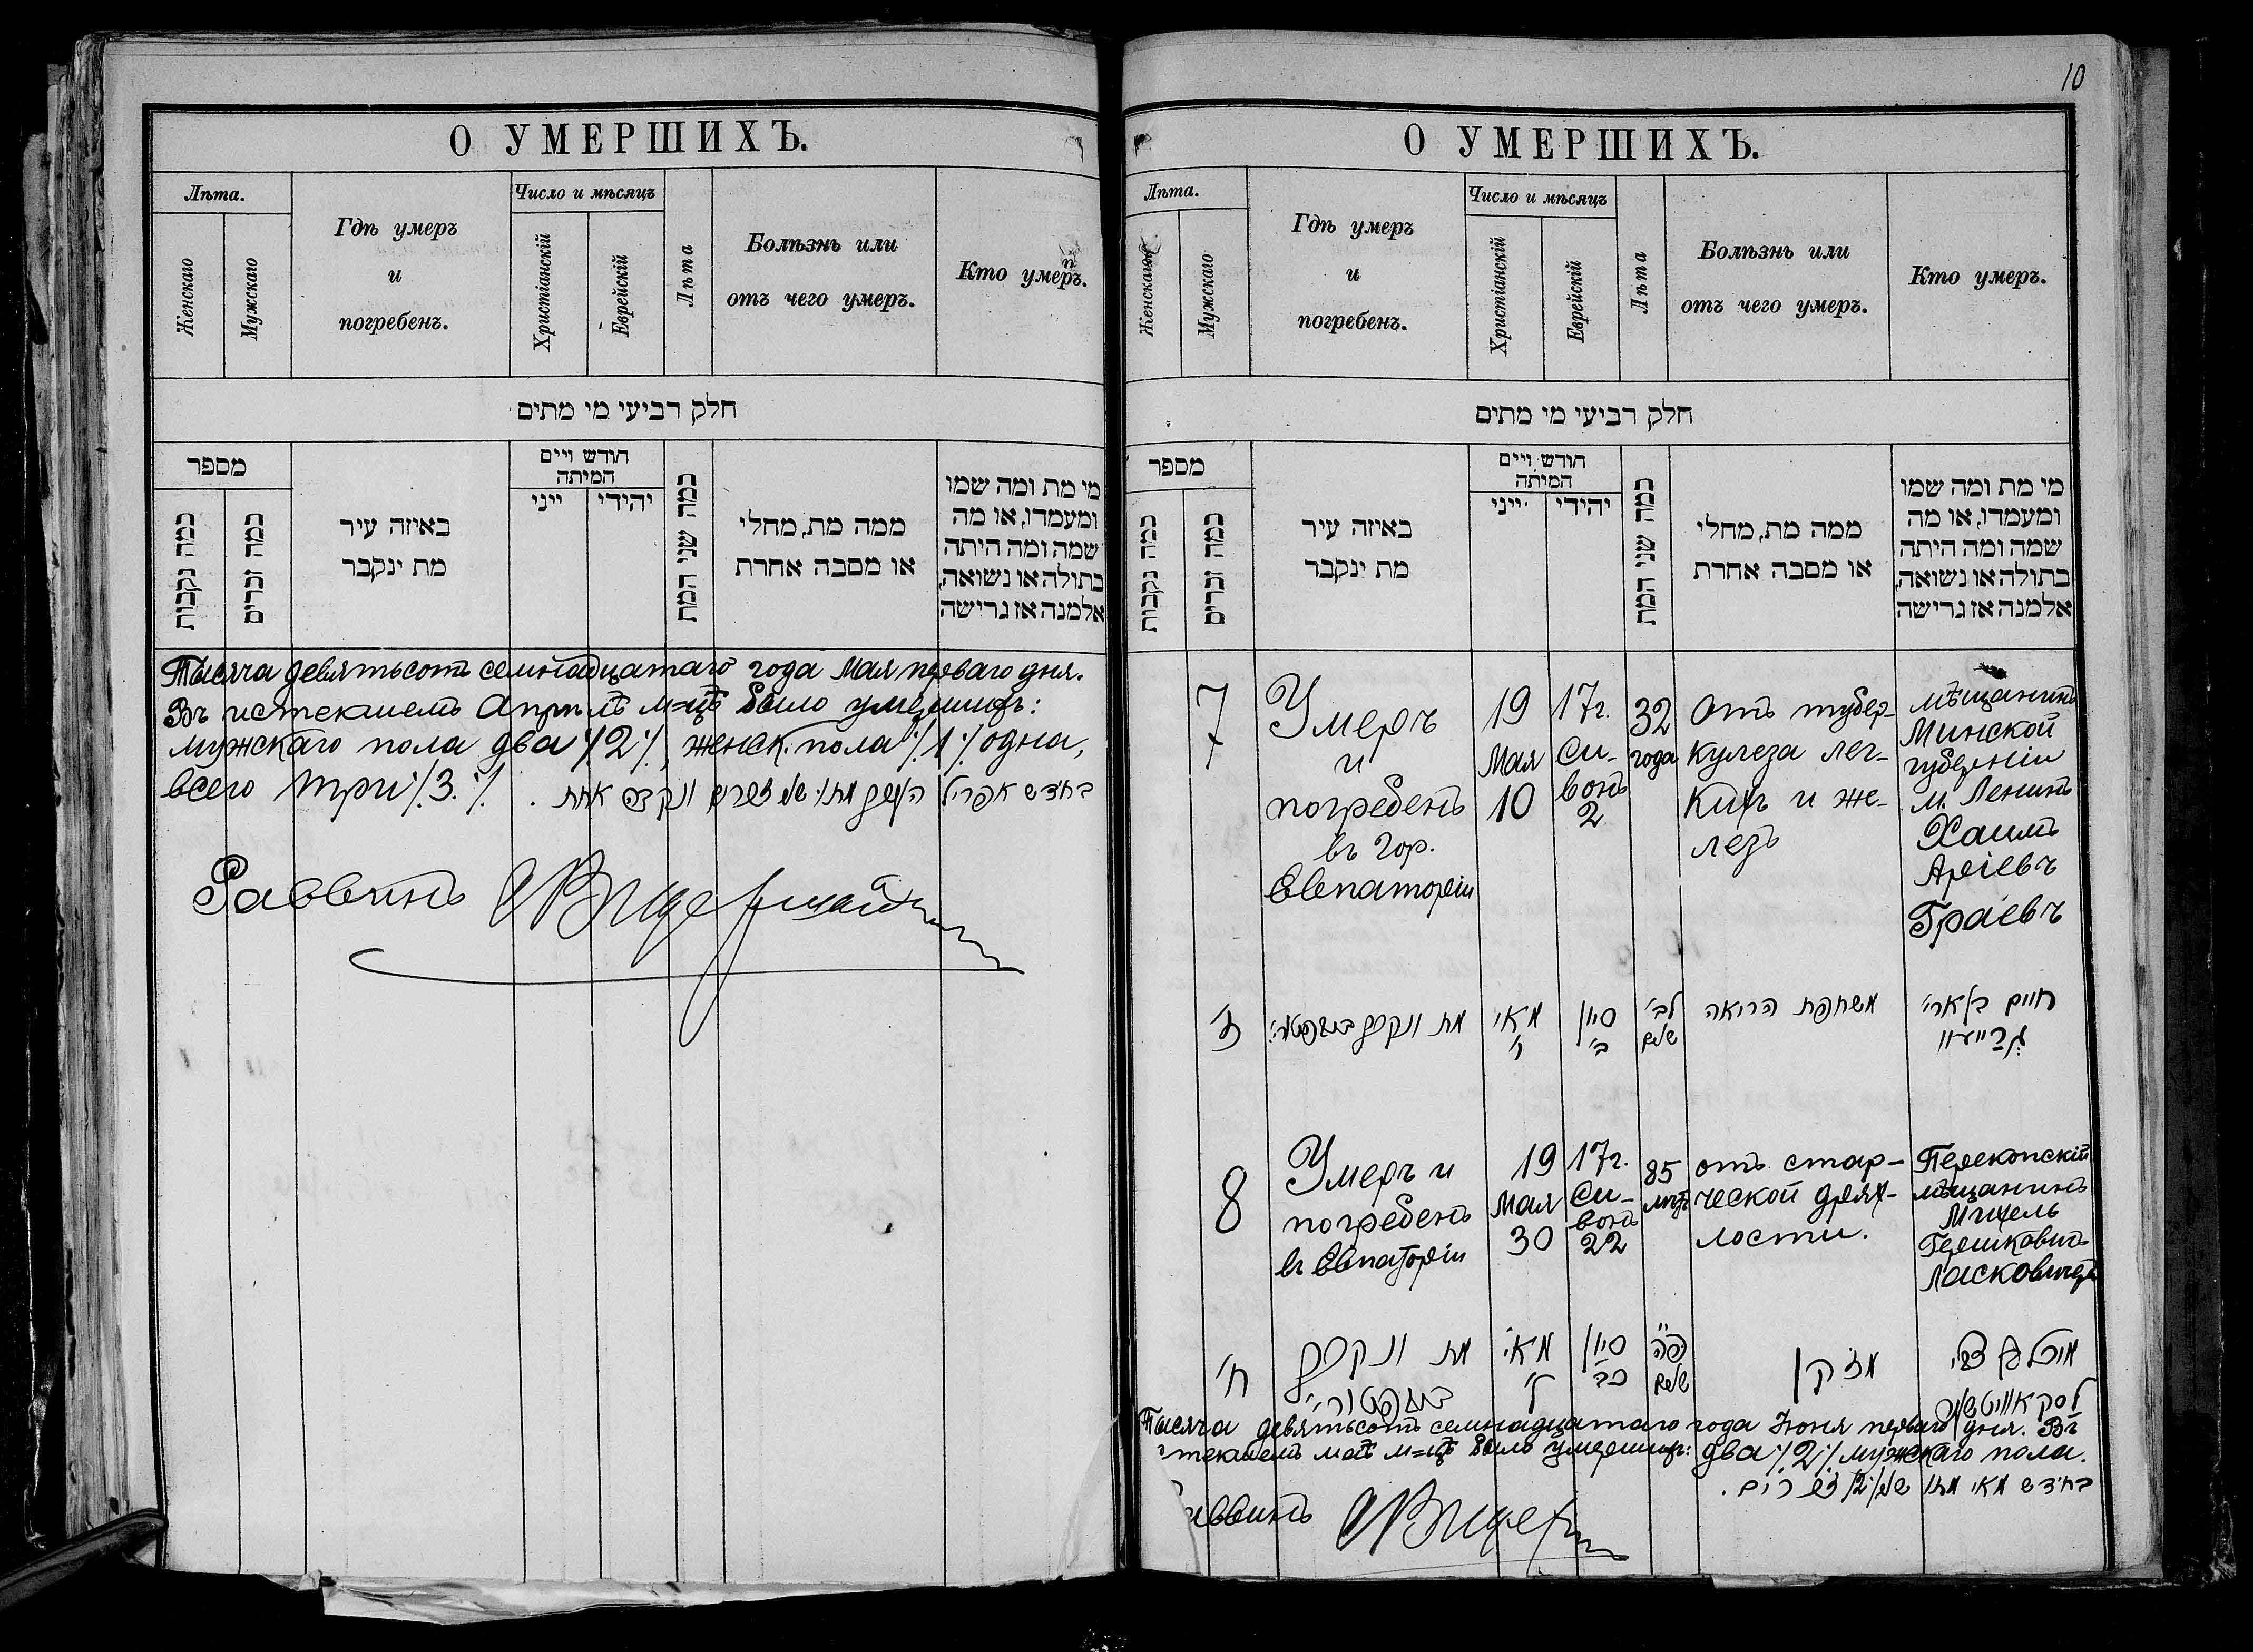 О УМЕРШИХЪ.
Лѣта.
Женскаго
Мужскаго
Гдѣ умеръ
и
погребенъ.
Число и мѣсяцъ
Христіанскій
Еврейскій
Лѣта
Болѣзнь или
отъ чего умеръ.
Кто умеръ.
חלק רביעי מי מתים
מספר
כמה נקבות
כמה זכרים
באיזה עיר
מת ינקבר
חודש ויים
המיתה
ייני
יהידי
כמה שני המת
ממה מת, מחלי
או מסבה אחרת
מי מת ומה שמו
ומעמדו, או מה
שמה ומה היתה
בתולה או נשואה,
אלמנה אז גרישה
Тысяча девятьсотъ семнадцатаго года Мая перваго дня.
Въ истекшемъ Апрѣлѣ м=цѣ было умершихъ:
мужскаго пола два ./.2./., женск. пола ./.1./. одна,
всего три ./.3./.
בחדש אפריל
Раввинъ
10
О УМЕРШИХЪ.
Лѣта.
Женскаго
Мужскаго
Гдѣ умеръ
и
погребенъ.
Число и мѣсяцъ
Христіанскій
Еврейскій
Лѣта
Болѣзнь или
отъ чего умеръ.
Кто умеръ.
חלק רביעי מי מתים
מספר
כמה נקבות
כמה זכרים
באיזה עיר
מת ינקבר
חודש ויים
המיתה
ייני
יהידי
כמה שני המת
ממה מת, מחלי
או מסבה אחרת
מי מת ומה שמו
ומעמדו, או מה
שמה ומה היתה
בתולה או נשואה,
אלמנה אז גרישה
7
Умеръ
и
погребенъ
въ гор.
Евпаторіи
19
Мая
10
17г.
Си-
вонъ
2
32
года
Отъ тубер-
кулеза лег-
кихъ и же-
лезъ
мѣщанинъ
Минской
губерніи
м. Ленинъ
Хаимъ
Аріевъ
Граевъ
ז'
מת ונקבר
מאי
י'
סיון
ב'
ל"ב
שנים
משחפת הריאה
חיים בן ארי'
8
Умеръ и
погребенъ
въ Евпаторіи
19
Мая
30
17г.
Си-
вонъ
22
85
лѣтъ
отъ стар-
ческой дрях-
лости.
Перекопскій
мѣщанинъ
Михель
Гершковичъ
Ласковицкій
ח'
מת ונקבר
מאי
ל'
סיון
כב
פ"ה
שנים
מזקן
Тысяча девятьсотъ семнадцатаго года Іюня перваго дня. Въ
текшемъ маѣ м=цѣ было умершихъ: два ./.2./. мужскаго пола.
בחדש מאי מתו שני ./.2./. זכרים.
аввинъ